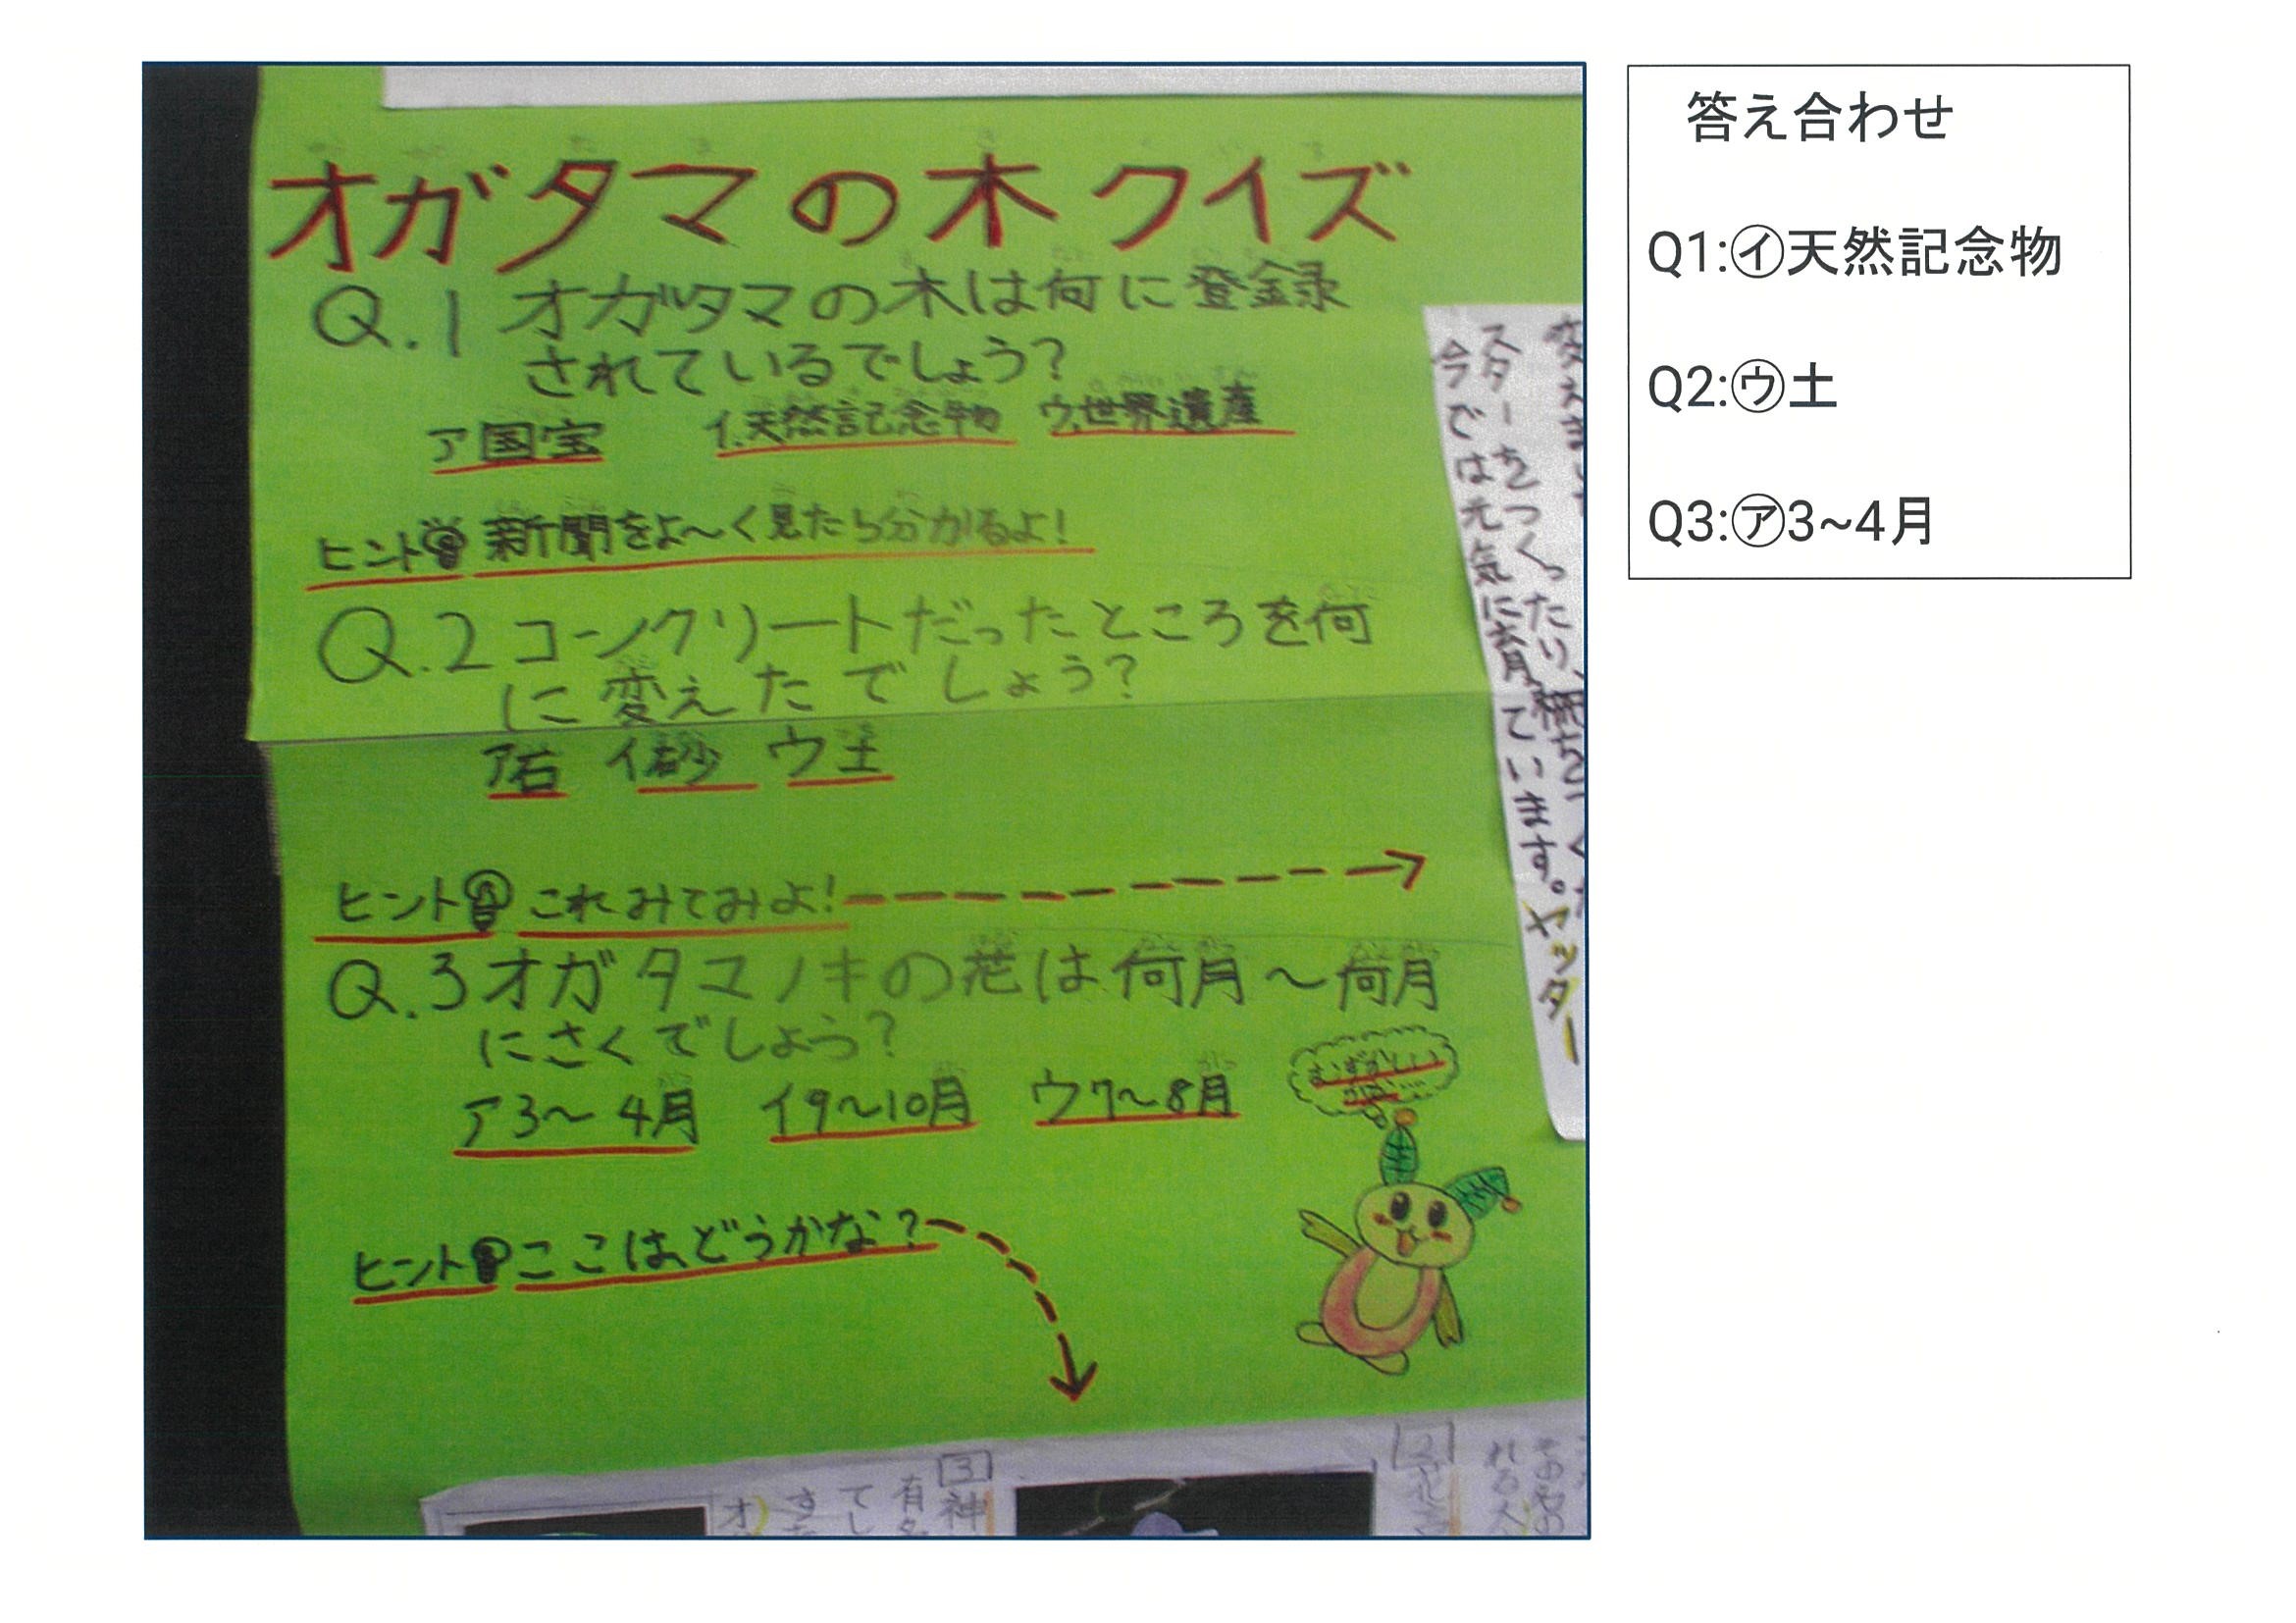 オガタマの木クイズ
Q.1 オガタマの木は何に登録
されているでしょう?
ア国宝 イ.天然記念物 ウ.世界遺産
ヒント 新聞をよ〜く見たら分かるよ!
Q.2 コンクリートだったところを何
に変えたでしょう?
ア石 イ砂 ウ土
ヒント これみてみよ!
Q.3 オガタマノキの花は何月〜何月
にさくでしょう?
ア3〜4月 イ9〜10月 ウ7〜8月
むずかしい
ヒント ここはどうかな?
スターをつくったり、
今では元気に育っています。ヤッター
3 神
答え合わせ
Q1:㋑天然記念物
Q2:㋒土
Q3:㋐3~4月